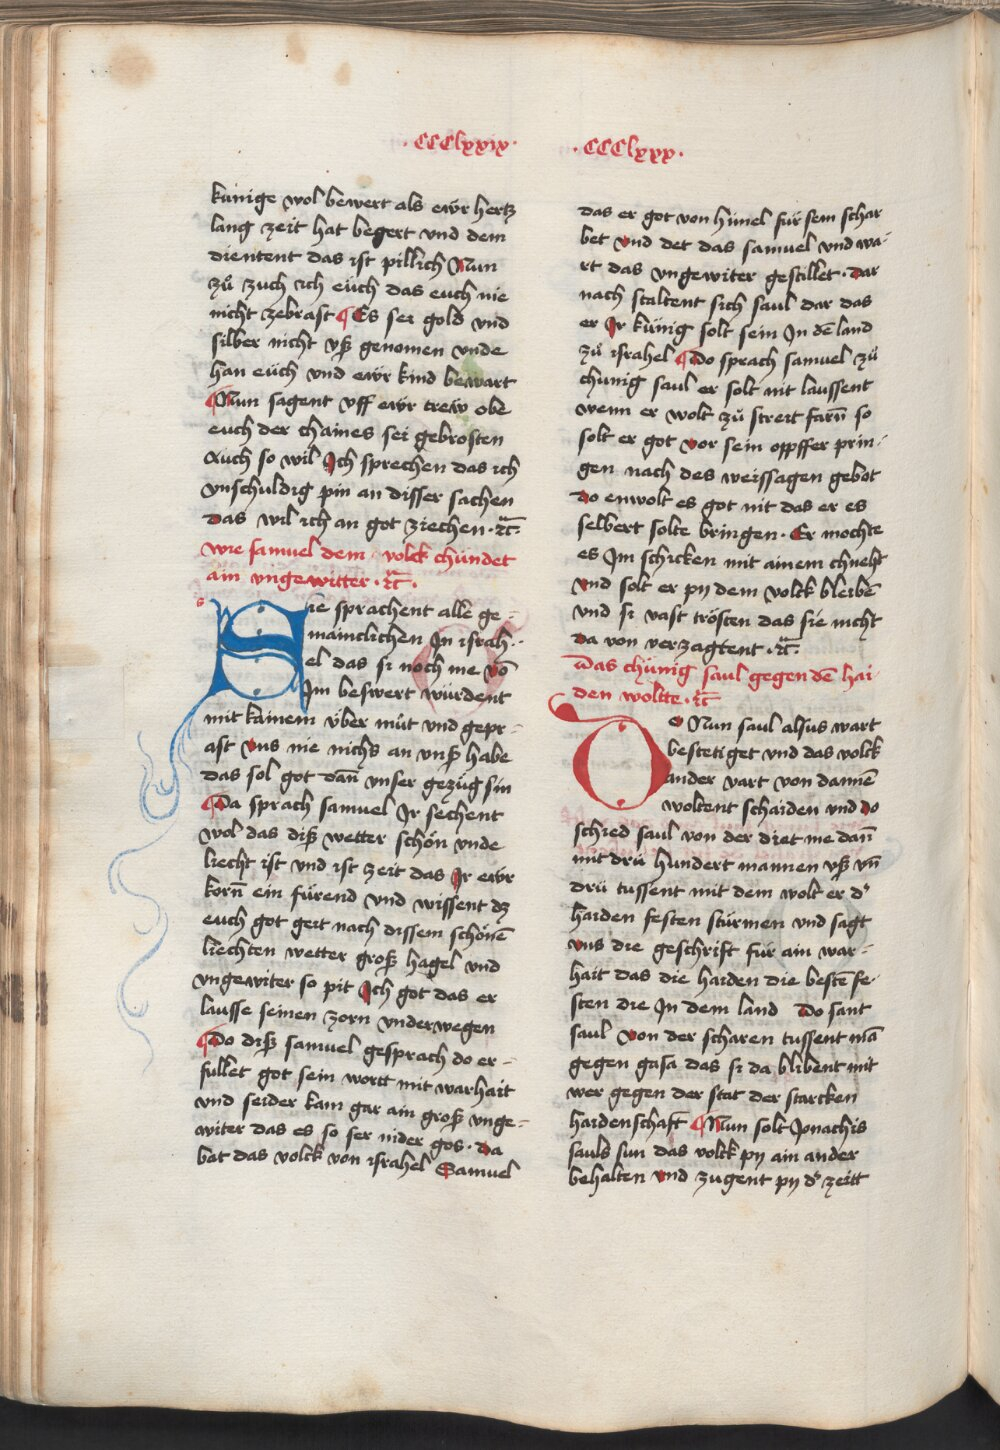 ·CCClxxix·
künige wol bewert als ewr hertz
lang zeit hat begert vnd dem
dientent das ist pillich Nun
zuͦ zuch ich eüch das euch nie
nicht zebrast Es sei gold vnd
silber nicht vß genomen vnde
han eüch vnd ewr kind bewart
Nun sagent vff ewr trew obe
euch der chaines sei gebrosten
Auch so wil Ich sprechen das ich
vnschuldig pin an disser sachen
das wil ich an got ziechen·ꝛc̄·
wie samuel dem volck chündet
ain vngewitter·ꝛc̄·
s
Sie sprachent alle ge-
mainclichen In israh-
el das si noch nie vō
Im beswert würdent
mit kainem über müt vnd gepr-
ast vns nie nichs an vnß habe
das sol got dan̄ vnser gezüg sin
Da sprach samuel Ir sechent
wol das diß wetter schön vnde
liecht ist vnd ist zeit das Ir ewr
korn̄ ein fürend vnd wissent dz
euch got geit nach dissem schönē
liechten wetter groß hagel vnd
vngewiter so pit Ich got das er
lausse seinen zorn vnderwegen
Do diß samuel gesprach do er-
füllet got sein wortt mit warhait
vnd seider kam gar ain groß vnge-
witer das es so ser nider gos·da
bat das volck von israhel Samuel
·CCClxxx·
das er got von himel für sein schar
bet vnd det das samuel vnd wa-
rt das vngewiter gestillet·dar
nach staltent sich saul dar das
er Ir künig solt sein In dē land
zuͦ israhel Do sprach samuel zuͦ
chunig saul er solt nit laussent
wenn er wolt zuͦ streit farn̄ so
solt er got vor sein opffer prin-
gen nach des weissagen gebot
do enwolt es got nit das er es
selbert solte bringen·Er mochte
es Im schicken mit ainem chneht
vnd solt er py dem volck bleibē
vnd si vast trösten das sie nicht
da von verzagtent·ꝛc̄·
Was chünig saul gegen dē hai
den woltte·ꝛc̄
Do Nun saul alsus wart
bestetiget vnd das volck
ander vart von dannē
woltent schaiden vnd do
schied saul von der diet me dan̄
mit drü hundert mannen vß vn̄
drü tussent mit dem wolt er d'
haiden festen stürmen vnd sagt
vns die geschrift für ain war-
hait das die haiden die bestē fe-
sten die In dem land Do sant
saul von der scharen tussent mā
gegen gasa das si da blibent mit
wer gegen der stat der starcken
haidenschaft Nun solt Jonachis
sauls sun das volck py ain ander
behalten vnd zugent py d' zeitt